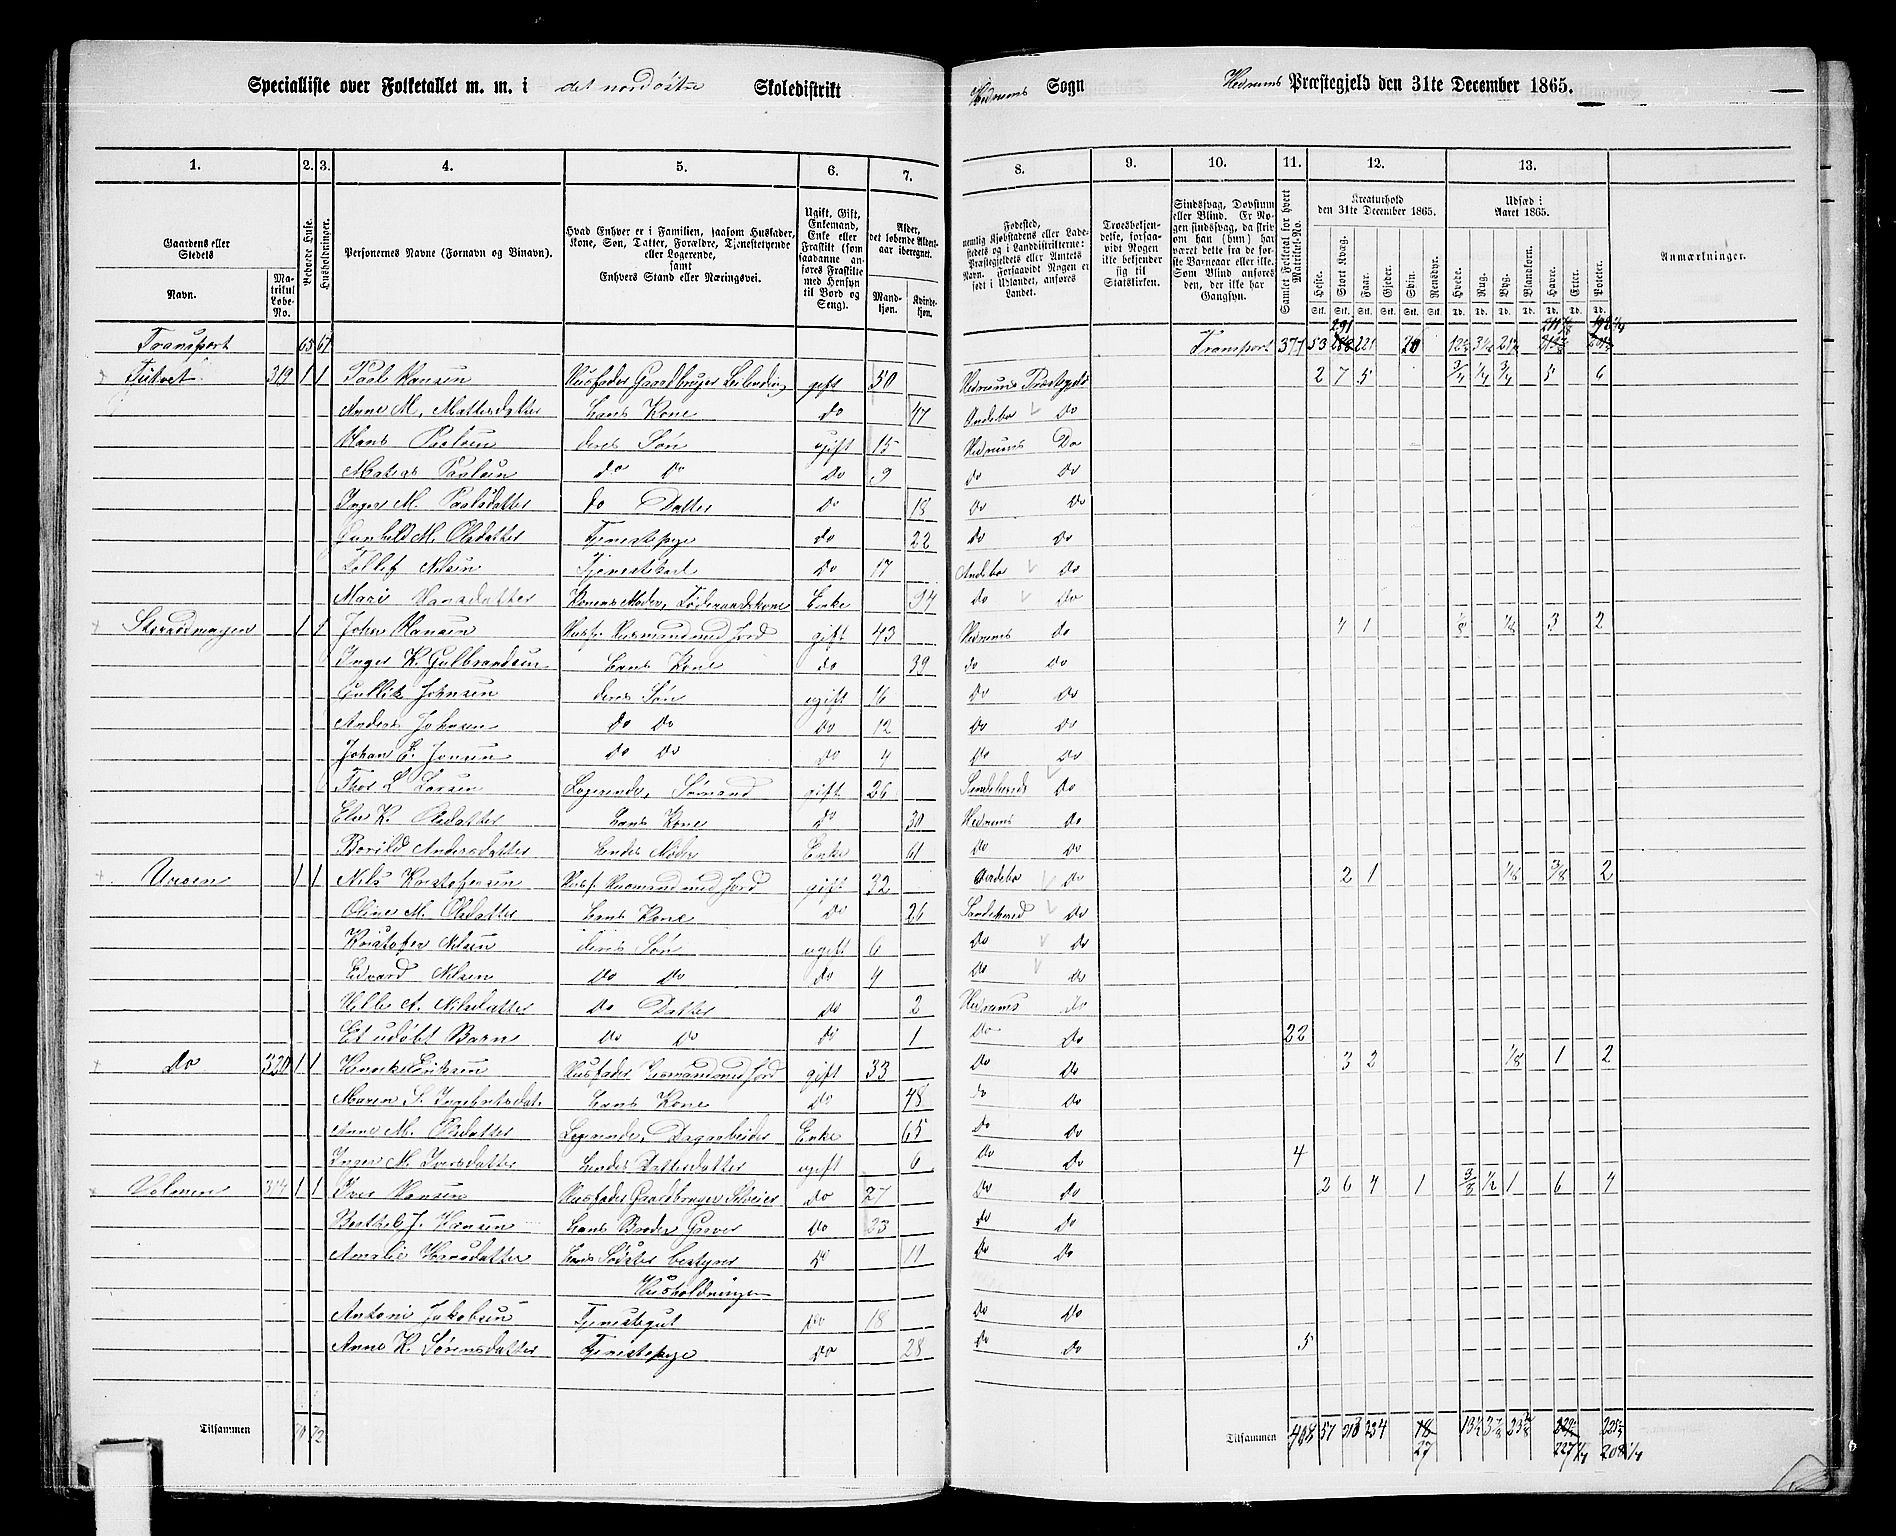 Specialliste over Folketallet m. m. i det nordøstre Skoledistrikt Hedrums Sogn Hedrums Præstegjeld den 31te December 1865.
1. 2. 3. 4. 5. 6. 7. 8. 9. 10. 11. 12. 13.
Gaardens eller Stedets Navn. Matrikul Løbe-No. Beboede Huse. Husholdninger. Personernes Navne (Fornavn og Binavn).
Hvad Enhver er i Familien, saasom Husfader, Kone, Søn, Datter, Forældre, Tjenestetyende eller Logerende, samt Enhvers Stand eller Næringsvei.
Ugift, Gift, Enkemand, Enke eller Fraskilt (saadanne anføres som Fraskilte med Hensyn til Bord og Seng).
Alder, det løbende Aldersaar iberegnet. Mandkjøn. Kvindekjøn.
Fødested, nemlig Kjøbstadens eller Ladestedets og i Landdistrikterne: Præstegjeldets eller Amtets Navn. Forsaavidt Nogen er født i Udlandet, anføres Landet.
Troesbekjendelse, forsaavidt Nogen ikke bekjender sig til Statskirken.
Sindssvag, Døvstum eller Blind.
Samlet Folketal for hvert Matrikul-No.
Kreaturhold den 31te December 1865. Heste. Stort Kvæg. Faar. Gjeder. Svin. Rensdyr.
Udsæd i Aaret 1865. Hvede. Rug. Byg. Blandkorn. Havre. Erter. Poteter.
Anmærkninger.
Transport 65 67 Transport 377 53 291 221 20
319 1 1 Paale Hansen Husfader Gaardbruger Leilending gift 50 Hedrums Præstegjeld 2 7 5 3/4 1/4 3/4 5 6
Anne M. Mattisdatter hans Kone do 47 Andebo do
Hans Paalsen deres Søn ugift 15 Hedrums Do
Matias Paalsen do do do 9 do do
Inger M. Paalsdatter do Datter do 18 do do
Gunhild M. Olsdatter Tjenestepige do 22 do do
Tollef Nilsen Tjenestekarl do 17 Andebo do
Mari Hansdatter Konens Moder, Føderaadskone Enke 94 do do
1 1 John Hansen Husf. Husmand med Jord gift 43 Hedrums do 4 1 1/8 1/2 3 2
Inger K. Gulbrandsen hans Kone do 39 do do
Gullik Johnsen deres Søn ugift 16 do do
Anders Johnsen do do do 12 do do
Johan E. Jonsen do do do 4 do do
Thor L. Larsen Logerende, Sømand gift 26 Sandeherred do
Else K. Olsdatter hans Kone do 30 Hedrums do
Borild Andersdatter hendes Moder Enke 61 do do
1 1 Nils Kristofersen Husf. Husmand med Jord gift 32 Andebo do 2 1 1/8 3/8 2
Oline M. Olsdatter hans Kone do 26 Sandeherred do
Kristofer Nilsen deres Søn ugift 6 do do
Edvard Nilsen do do do 4 do do
Helle A. Nilsdatter do Datter do 2 Hedrums do
Et udøbt Barn do do do 1 do do 22
Do 320 1 1 Eriksen Husfader Husmand med Jord gift 33 do do 3 2 1/8 1 2
Maren S. Ingebretsdat. hans Kone do 48 do do
Anne M. Olsdatter Logerende, Dagarbeider Enke 65 do do
Inger M. Iversdatter hendes Datterdatter ugift 6 do do 4
1 1 Iver Hansen Husfader Gaardbruger Selveier do 27 do do 2 6 4 1 3/8 1/2 1 6 4
Berthel J. Hansen hans Broder Graver do 23 do do
Amalie Hansdatter hans Søster bestyrer do 11 do do
Husholdningen
Antoni Jakobsen Tjenestegut do 18 do do
Anne K. Sørensdatter Tjenestepige do 28 do do 5
Tilsammen 70 72 Tilsammen 408 57 313 234 18
27